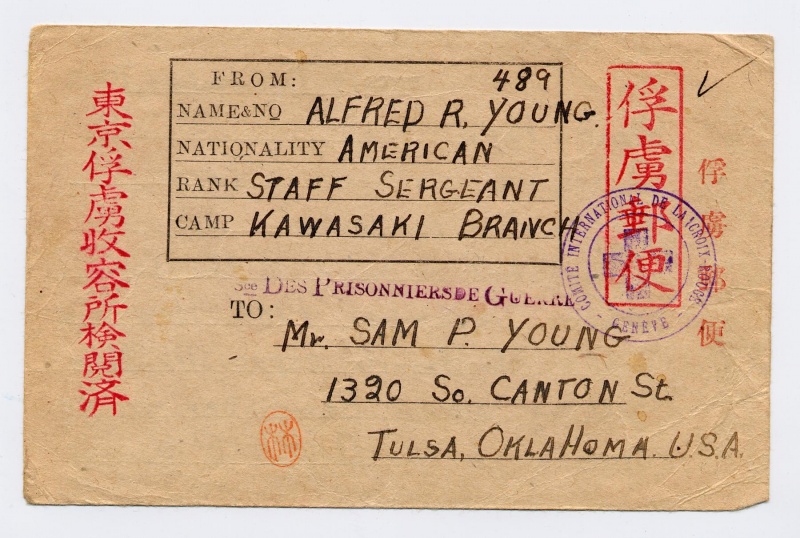 東京俘虜収容所検閲済
FROM: 489
NAME&NO ALFRED R. YOUNG.
NATIONALITY AMERICAN
RANK STAFF SERGEANT
CAMP KAWASAKI BRANCH
俘虜郵便
俘虜郵便
COMITÉ INTERNATIONAL DE LA CROIX-ROUGE
- GENÈVE -
Sce DES PRISONNIERS DE GUERRE
TO:
Mr. SAM P. YOUNG
1320 So. CANTON St.
TULSA, OKLAHOMA. U.S.A.
林